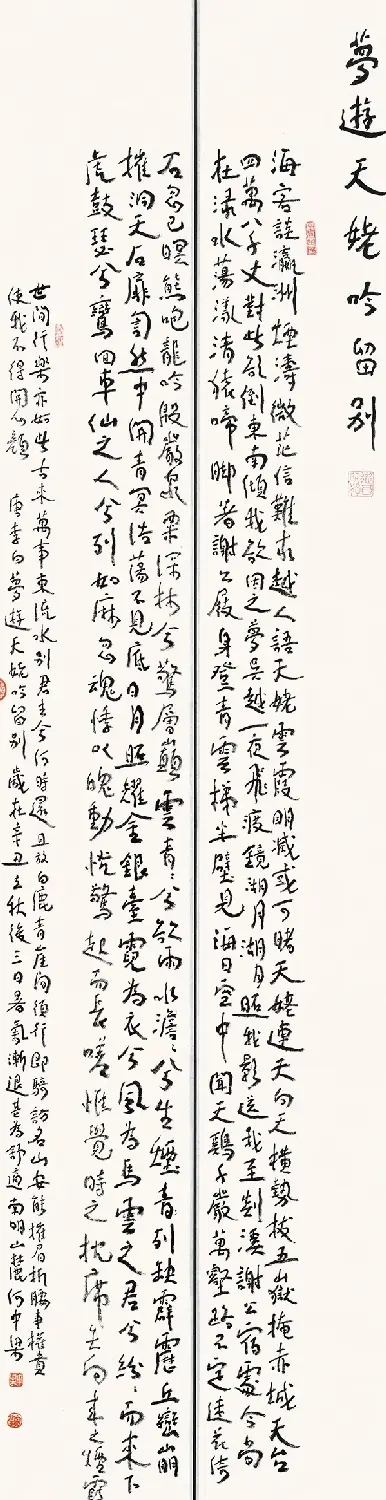 夢遊天姥吟留別
海客談瀛洲煙濤微茫信難求越人語天姥雲霞明滅或可睹天姥連天向天橫勢拔五嶽掩赤城天台
四萬八千丈對此欲倒東南傾我欲因之夢吳越一夜飛渡鏡湖月湖月照我影送我至剡溪謝公宿處今尚
在淥水蕩漾清猿啼腳著謝公屐身登青雲梯半壁見海日空中聞天雞千巖萬壑路不定迷花倚
石忽已暝熊咆龍吟殷巖泉栗深林兮驚層巔雲青〻兮欲雨水澹〻兮生煙列缺霹靂丘巒崩
摧洞天石扉訇然中開青冥浩蕩不見底日月照耀金銀臺霓為衣兮風為馬雲之君兮紛〻而來下
虎鼓瑟兮鸞回車仙之人兮列如麻忽魂悸以魄動恍驚起而長嗟惟覺時之枕席失向來之煙霞
世間行樂亦如此古來萬事東流水別君去兮何時還且放白鹿青崖間須行即騎訪名山安能摧眉折腰事權貴
使我不得開心顏 唐李白夢遊天姥吟留別 歲在辛丑立秋後三日暑氣漸退甚為舒適南明山麓何中梁